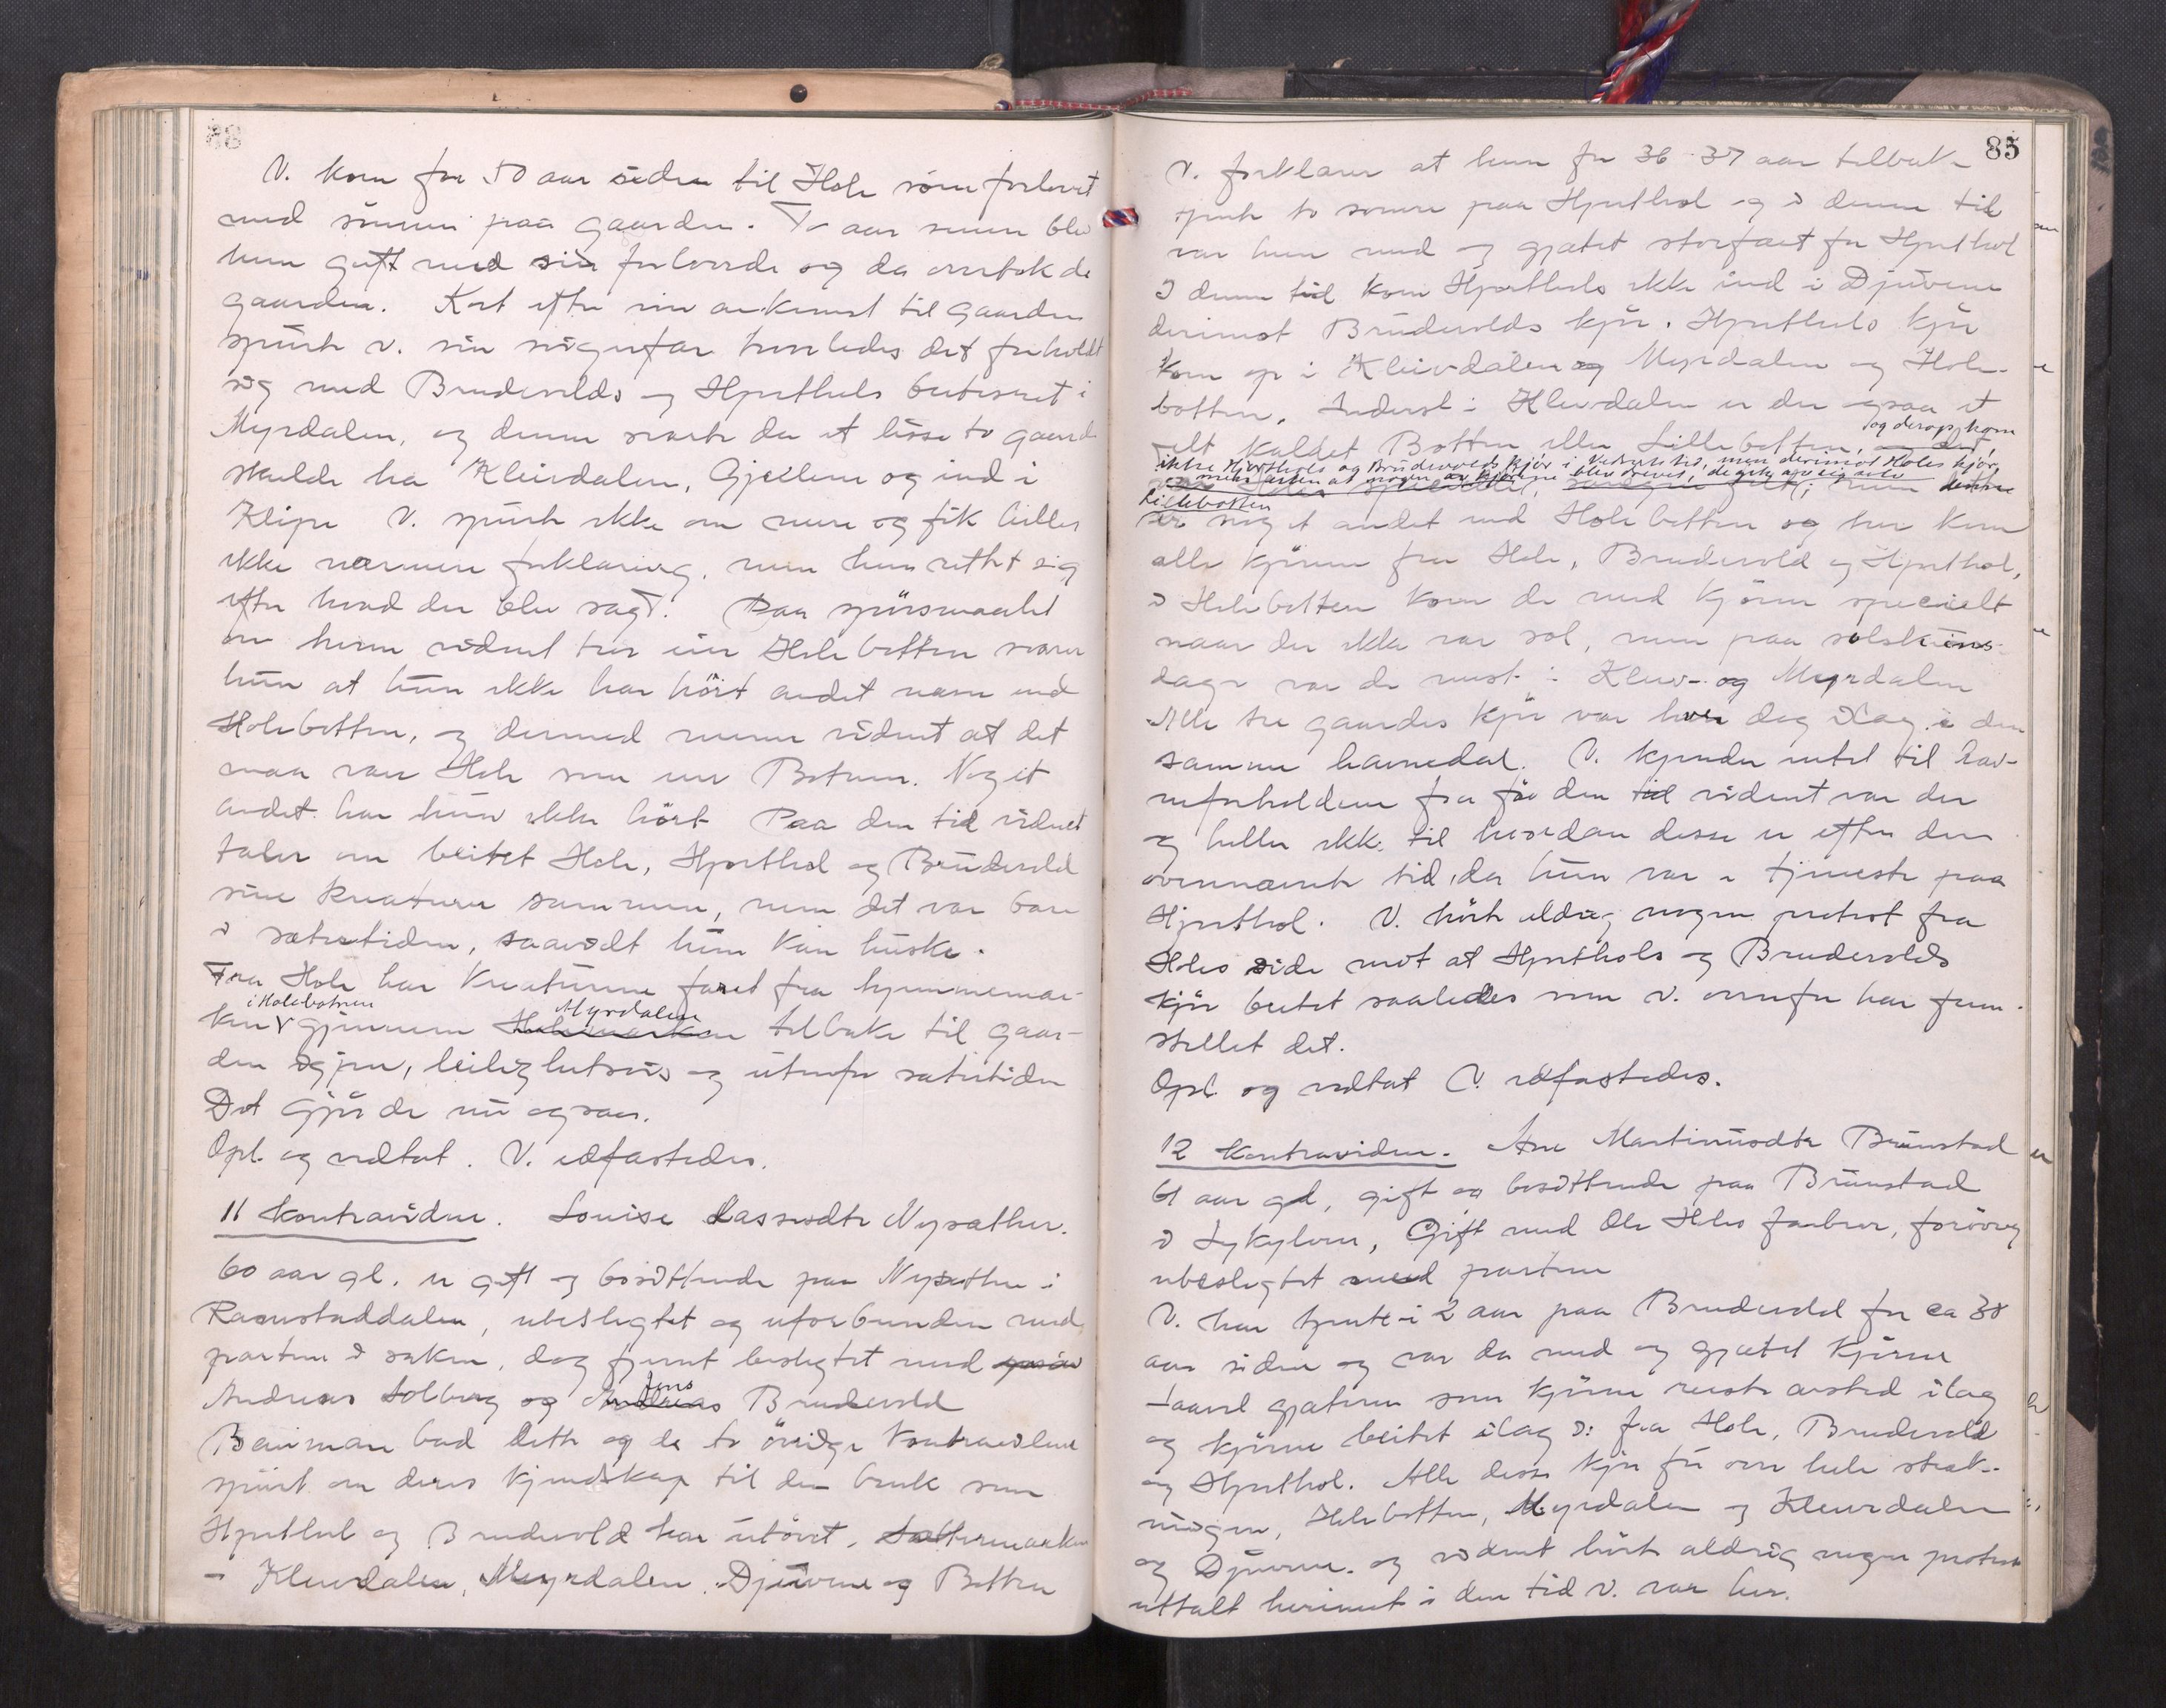 V. kom for 50 aar siden til Hole som forlovet
med sønnen paa gaarden. To aar senere blev
hun gift med sin forlovede og da overtok de
gaarden. Kort efter sin ankomst til gaarden
spurte v. sin svigerfar hvorledes det forholdt
sig med Brudevolds og Hjorthols beitesret i
Myrdalen, og denne svarte da at disse to gaarde
skulde ha Kleivdalen, Gjeilene og ind i
Klipe V. spurte ikke om mere og fik heller
ikke nærmere forklaring, men hun rettet sig
efter hvad der blev sagt. Paa spørsmaalet
om hvem vidnet tror eier Holebotten svarer
hun at hun ikke har hørt andet navn end
Holebotten, og dermed mener vidnet at det
maa være Hole som eier Botnen. Noget
andet har hun ikke hørt Paa den tid vidnet
taler om beitet Hole, Hjorthol og Brudevold
sine kreaturer sammen, men det var bare
i sætertiden, saavidt hun kan huske.
Fra Hole har kreaturene faret fra hjemmemar-
i Holebotnen Myrdalen
ken gjennem Holemarken tilbake til gaar-
den igjen, leilighetsvis og utenfor sætertiden
Det gjør de nu ogsaa.
Opl. og vedtat. V. edfæstedes.
11 kontravidne. Louise Lassesdtr Nysæther.
60 aar gl. er gift og bosittende paa Nysæther i
Ramstaddalen, ubeslegtet og uforbunden med
partene i saken, dog fjernt beslegtet med
Andreas Solberg og Andreas Brudevold
Jens
Beirmann bad dette og de to øvrige kontravidner
spurt om deres kjendskap til den bruk som
Hjorthol og Brudevold har utøvet, Sættermarken
i Kleivdalen, Myrdalen, Djuvene og Botten
85
V. forklarer at hun for 36-37 aar tilbake
tjente to somre paa Hjorthol og i denne tid
var hun med og gjætet storfæet for Hjorthol
I denne tid kom Hjorthols ikke ind i Djuvene
derimot Brudevolds kjør. Hjorthols kjør
kom op i Kleivdalen og Myrdalen og Hole-
botten. Inderst i Kleivdalen er der ogsaa et
og derop kom
felt kaldet Botten eller Lillebotten, og det,
ikke Hjorthols og Brudevolds kjør i vidnets tid, men derimot Holes kjør,
men uten at nogen av kjørne blev drevet, de gik av sig selv
men denne
Lillebotten
er noget andet end Holebotten og her kom
alle kjørene fra Hole, Brudevold og Hjorthol,
i Holebotten kom de med kjørne specielt
naar der ikke var sol, men paa solskins-
dage var de mest i Kleiv- og Myrdalen
Alle tre gaardes kjør var hver dag ilag i den
samme havnedal. V. kjender intet til hav-
neforholdene fra før den tid vidnet var der
og heller ikke til hvordan disse er efter den
ovennævnte tid, da hun var i tjeneste paa
Hjorthol. V. hørte aldrig nogen protest fra
Holes side mot at Hjorthols og Brudevolds
kjør beitet saaledes som v. ovenfor har frem-
stillet det.
Opl. og vedtat V. edfæstedes.
12 kontravidne. Ane Martinusdtr Brunstad
61 aar gl, gift og bosittende paa Brunstad
i Sykylven, Gift med Ole Holes farbror, forøvrig
ubeslegtet med partene
V. har tjent i 2 aar paa Brudevold for ca 38
aar siden og var da med og gjætet kjørne
saavel gjæterne som kjørne reiste avsted ilag
og kjørne beitet ilag ɔ: fra Hole, Brudevold
og Hjorthol. Alle disse kjør før over hele stræk-
ningen, Holebotten, Myrdalen og Kleivdalen
og Djuvene. og vidnet hørte aldrig nogen protest
uttalt herimot i den tid v. var her.